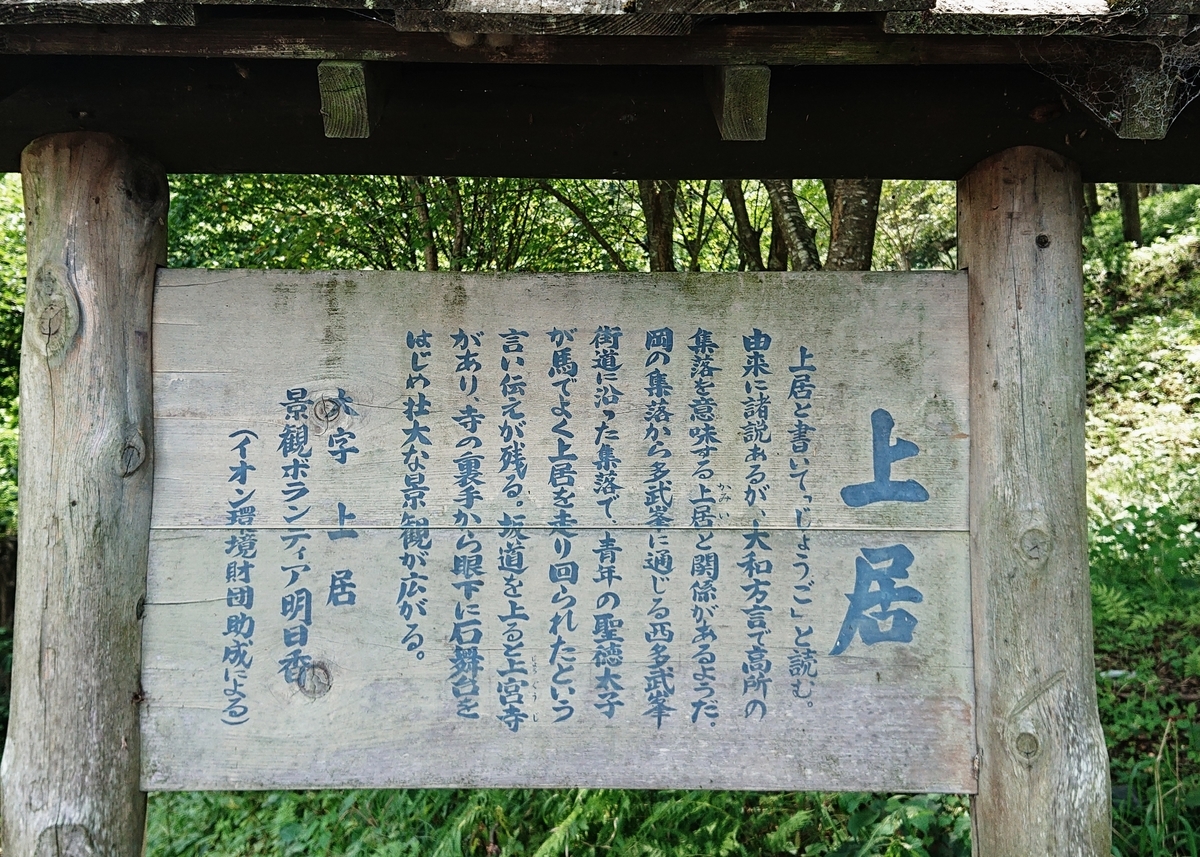 上居
上居と書いて「じょうご」と読む。
由来に諸説あるが、大和方言で高所の
集落を意味する上居と関係があるようだ。
かみい
岡の集落から多武峯に通じる西多武峯
街道に沿った集落で、青年の聖徳太子
が馬でよく上居を走り回られたという
言い伝えが残る。坂道を上ると上宮寺
じょうぐうじ
があり、寺の裏手から眼下に石舞台を
はじめ壮大な景観が広がる。
大字 上居
景観ボランティア明日香
(イオン環境財団助成による)